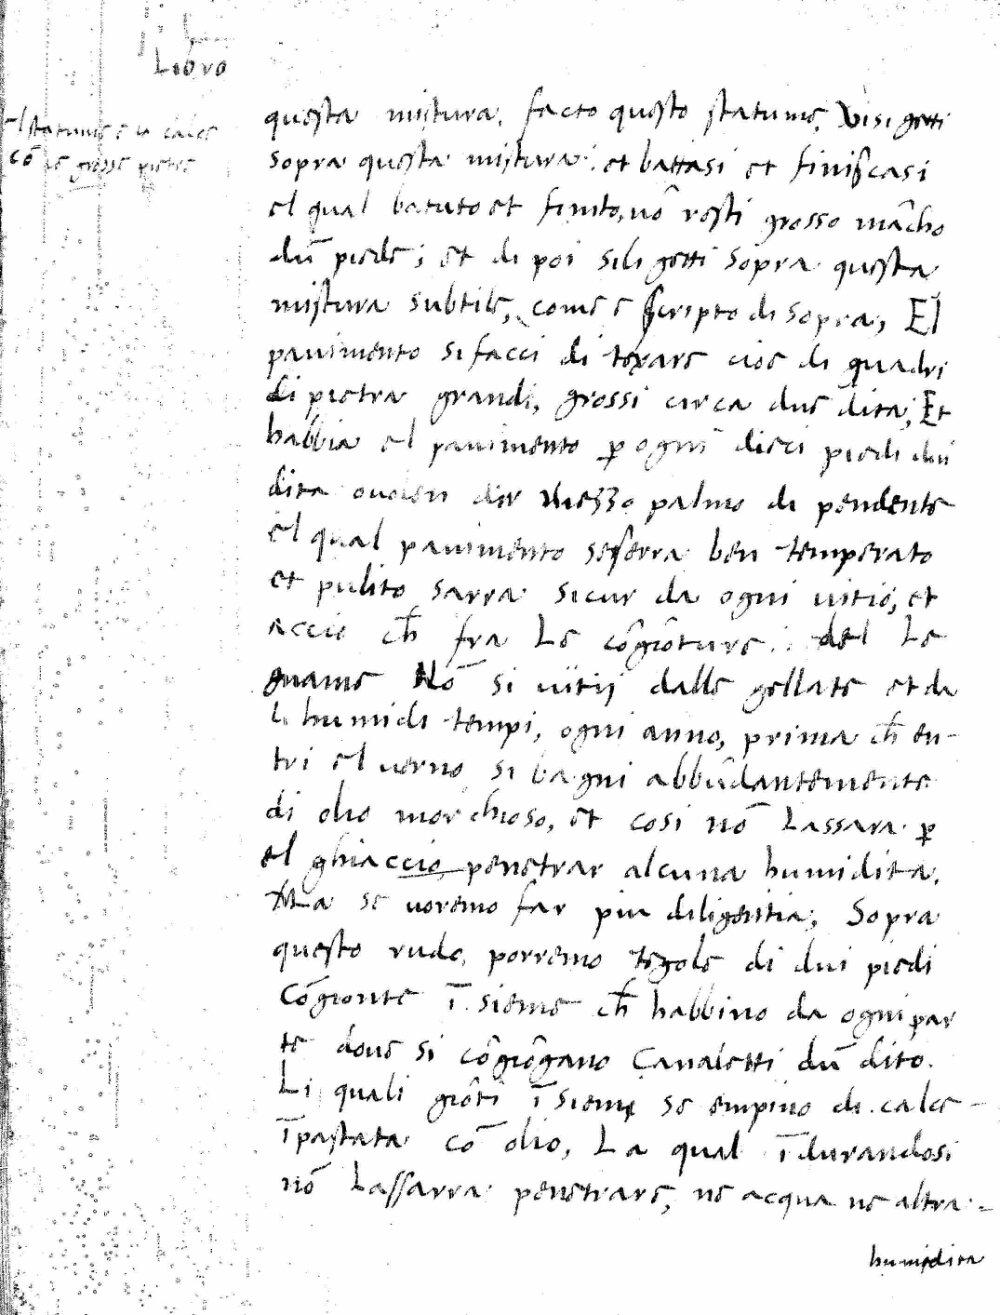 Libro
El statume e la calce
cō le grosse pietre
questa mistura, facto questo statume, vi si getti
sopra questa mistura: et battasi et finiscasi
el qual batuto et finito, nō resti grosso mācho
dū piede; et di poi sili getti sopra questa
mistura subtile, come e scripto di sopra, El
pauimento si facci di texare cioe di quadri
di pietra grandi, grossi circa due dita; Et
habbia el pauimento ꝑ ogni dieci piedi dui
dita ouoien dir mezzo palmo di pendente
el qual pauimento seserra ben temperato
et pulito sarra sicur da ogni uitio, et
accio ch̄ fra le cōgiōture del le
gname Nō si uitij dalle gellate et da
li humidi tempi, ogni anno, prima ch̄ en-
tri el uerno si bagni abbūdantemente
di olio morchioso, et cosi nō lassara ꝑ
el ghiaccio penetrar alcuna humidita.
Ma se uoremo far piu diligentia, Sopra
questo rudo, porremo tegole di dui piedi
cōgionte ī sieme ch̄ habbino da ogni par
te doue si cōgiōgano canaletti dū dito.
Li quali giōti ī sieme se empino di calce
īpastata cō olio, La qual īdurandosi
nō lassarra penetrare, ne acqua ne altra
humidita